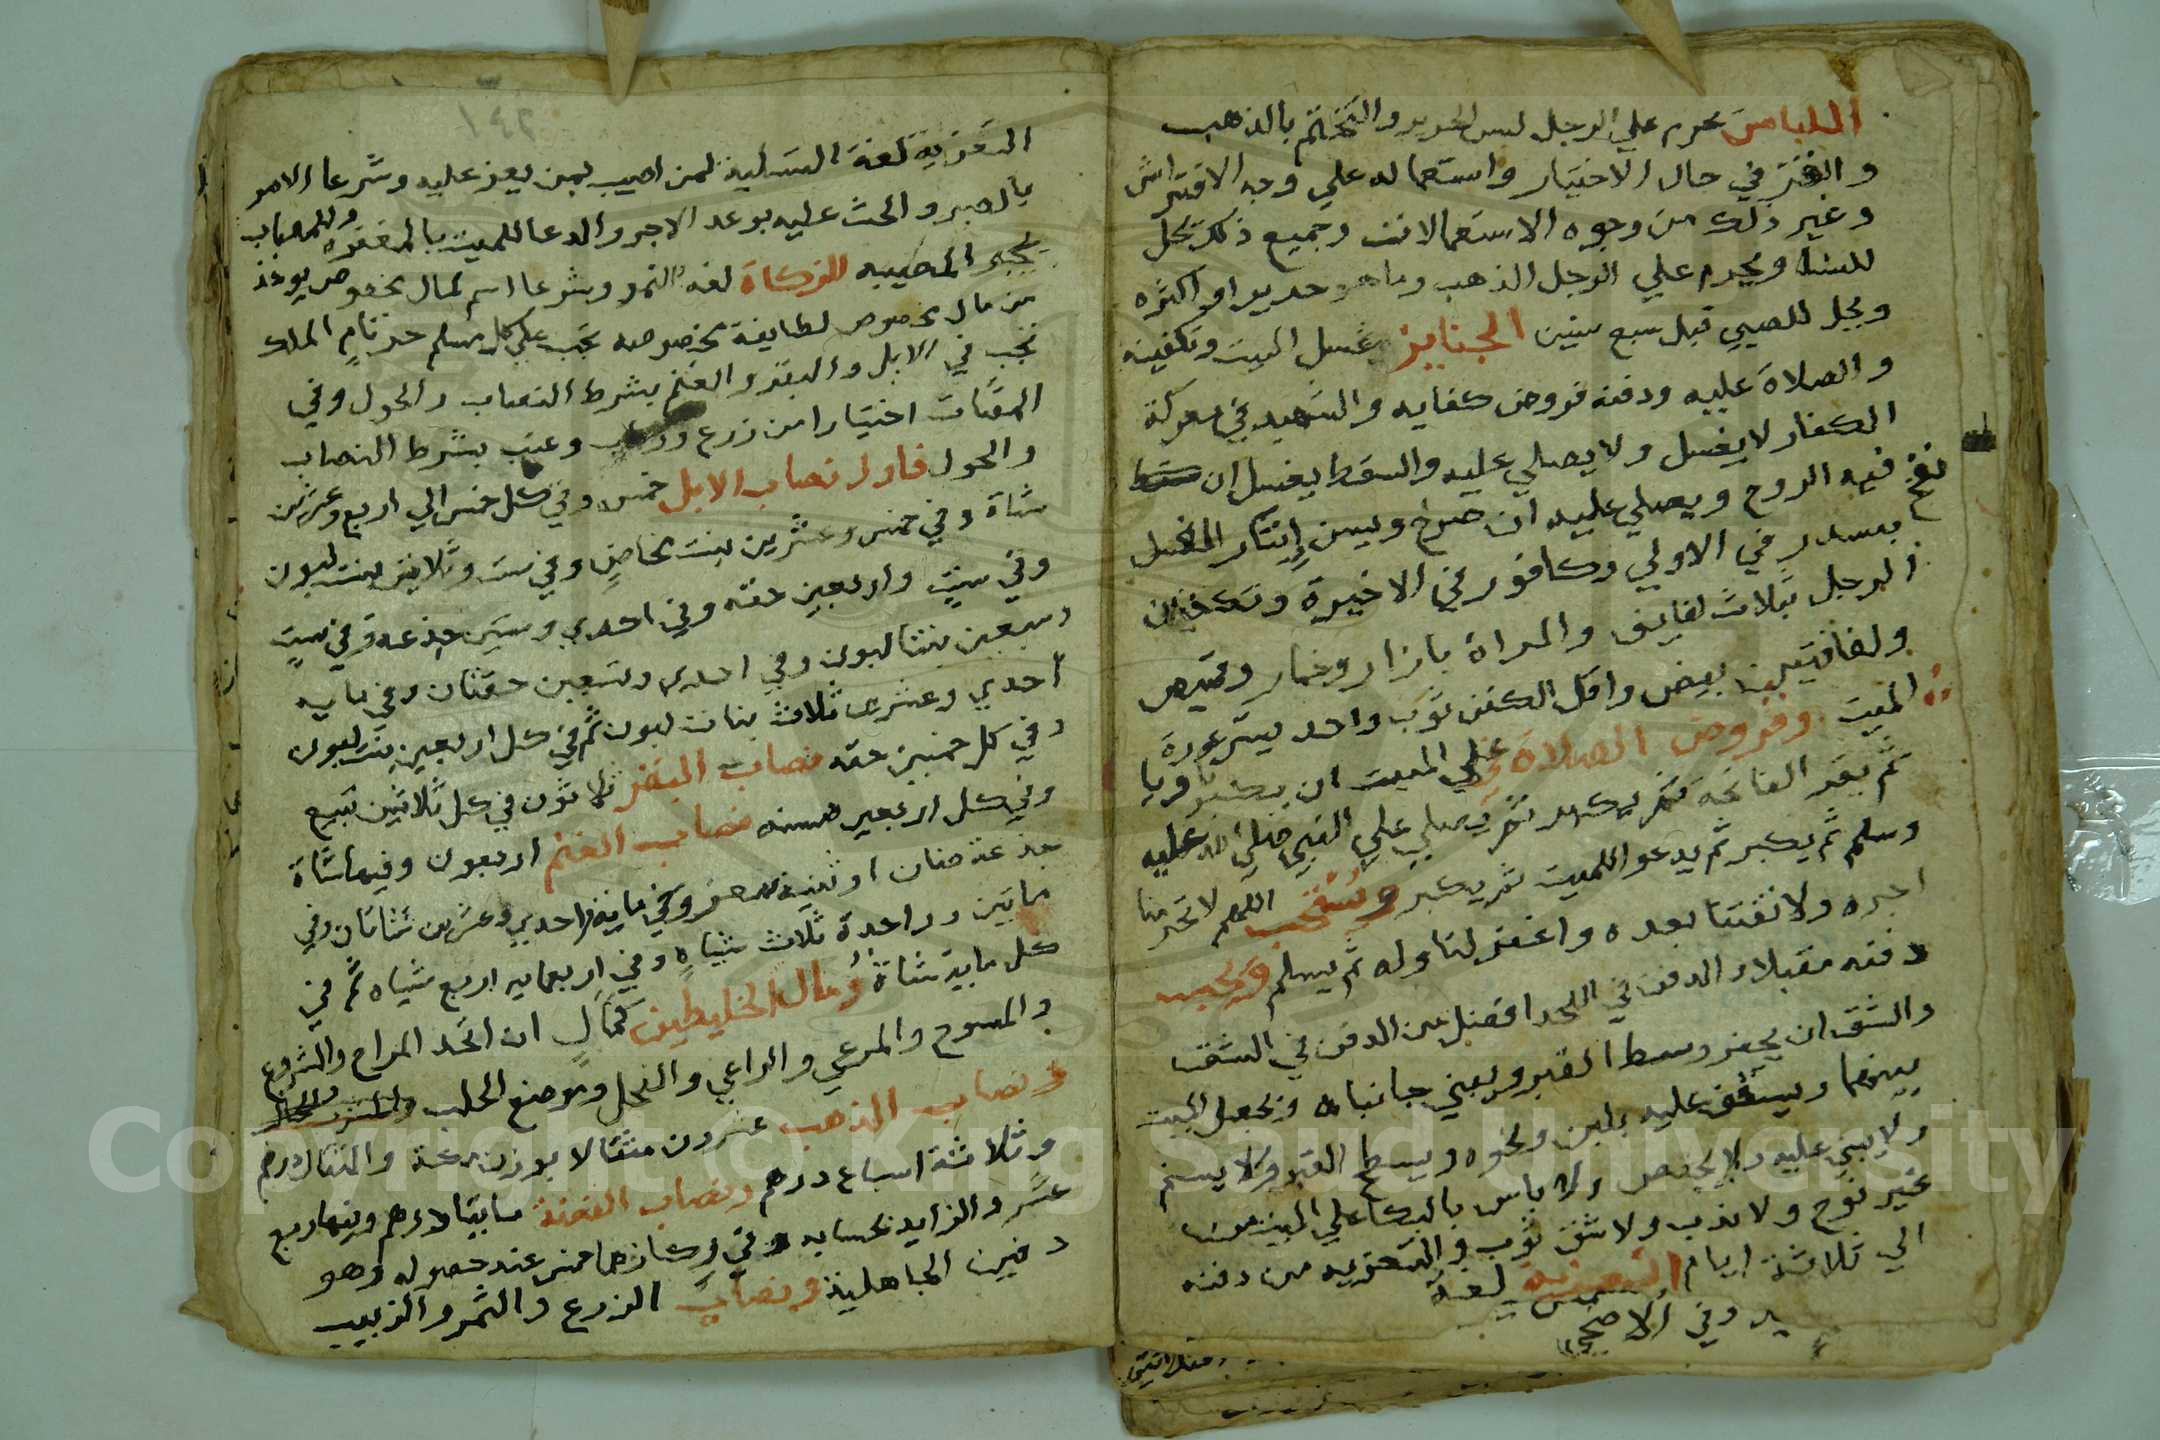 الملباس يحرم علي الرجل لبس الحرير والتختم بالذهب
والقز في حال الاختيار واستعماله علي وجه الافتراش
وغير ذلك من وجوه الاستعمالات وجميع ذلك يحل
للنسا ويحرم علي الرجل الذهب وما هو حرير او اكثره
ويحل للصبي قبل سبع سنين الجنايز غسل الميت وتكفينه
والصلاة عليه ودفنه فروض كفايه والشهيد في معركة
الكفار لا يغسل ولا يصلي عليه والسقط يغسل ان
نفخ فيه الروح ويصلي عليه ان صرخ ويسن إيتار الغسل
بسدر في الاولي وكافور في الاخيرة وتكفين
الرجل بثلاث لفايف والمراة بازار وخمار وقميص
ولفافتين بيض واقل الكفن ثوب واحد يستر عورة
الميت وفروض الصلاة علي الميت ان يكبر ناويا
ثم يقر الفاتحه ثم يكبر ثم يصلي علي النبي صلي الله عليه
وسلم ثم يكبر ثم يدعوا للميت ثم يكبر ويستحب اللهم لا تحرمنا
اجره ولا تفتنا بعده واغفر لنا وله ثم يسلم ويجب
دفنه مقبلا والدفن في اللحد افضل من الدفن في الشق
والشق ان يحفر وسط القبر ويبني جانباه ويجعل الميت
بينهما ويسقف عليه بلبن ونحوه ويسطح القبر ولا يسنم
ولا يبني عليه ولا يجصص ولا باس بالبكا علي الميت من
غير نوح ولا ندب ولا شق ثوب والتعزيه من دفنه
الي ثلاثة ايام التعزية لغة
وفي الاضحي
التعزية لغة التسلية لمن اصيب بمن يعز عليه وشرعا الامر
بالصبر والحث عليه بوعد الاجر والدعا للميت بالمغفرة وللمصاب
بجبر المصيبه الزكاة لغه النمو وشرعا اسم لمال مخصوص يوخذ
من مال مخصوص لطايفة مخصوصه تجب علي كل مسلم حر تام الملك
تجب في الابل والبقر والغنم بشرط النصاب والحول وفي
المقتات اختيارا من زرع وعنب بشرط النصاب
والحول فاول نصاب الابل خمس وفي كل خمس الي اربع وعشرين
شاة وفي خمس وعشرين بنت مخاض وفي ست وثلاثين بنت لبون
وفي ست واربعين حقه وفي احدي وستين جذعه وفي ست
وسبعين بنتا لبون وفي احدي وتسعين حقتان وفي مايه
احدي وعشرين ثلاث بنات لبون ثم في كل اربعين بنت لبون
وفي كل خمسين حقه نصاب البقر ثلاثون في كل ثلاثين تبيع
وفي كل اربعين مسنه نصاب الغنم اربعون وفيها شاة
جذعة ضان او ثنية معز وفي ماية واحدي وعشرين شاتان وفي
مايتين وواحدة ثلاث شياه وفي اربعمايه اربع شياه ثم في
كل ماية شاة ومال الخليطين كمال ان اتحد المراح والشروع
والمسرح والمرعي والراعي والفحل وموضع الحلب
ونصاب الذهب عشرون مثقالا بوزن مكة والمثقال درهم
وثلاثة اسباع درهم ونصاب الفضة مايتا درهم وفيها ربع
عشر والزايد بحسابه وفي ركازهما خمس عند حصوله وهو
دفين الجاهلية ونصاب الزرع والثمر والزبيب
Copyright © King Saud University